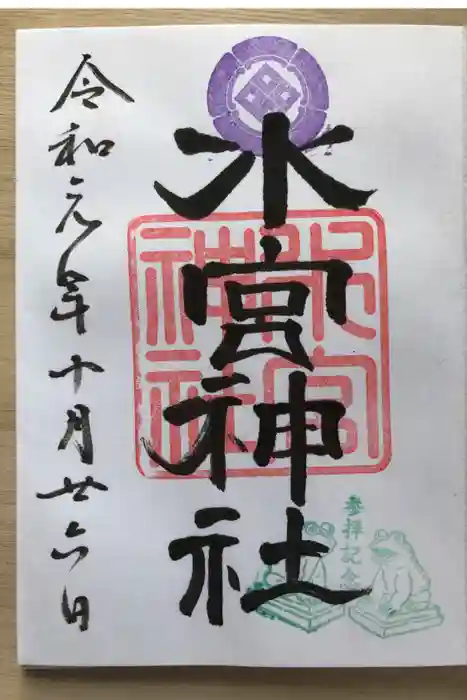 参拝記念
水宮神社
水宮
神社
令和元年十月廿六日